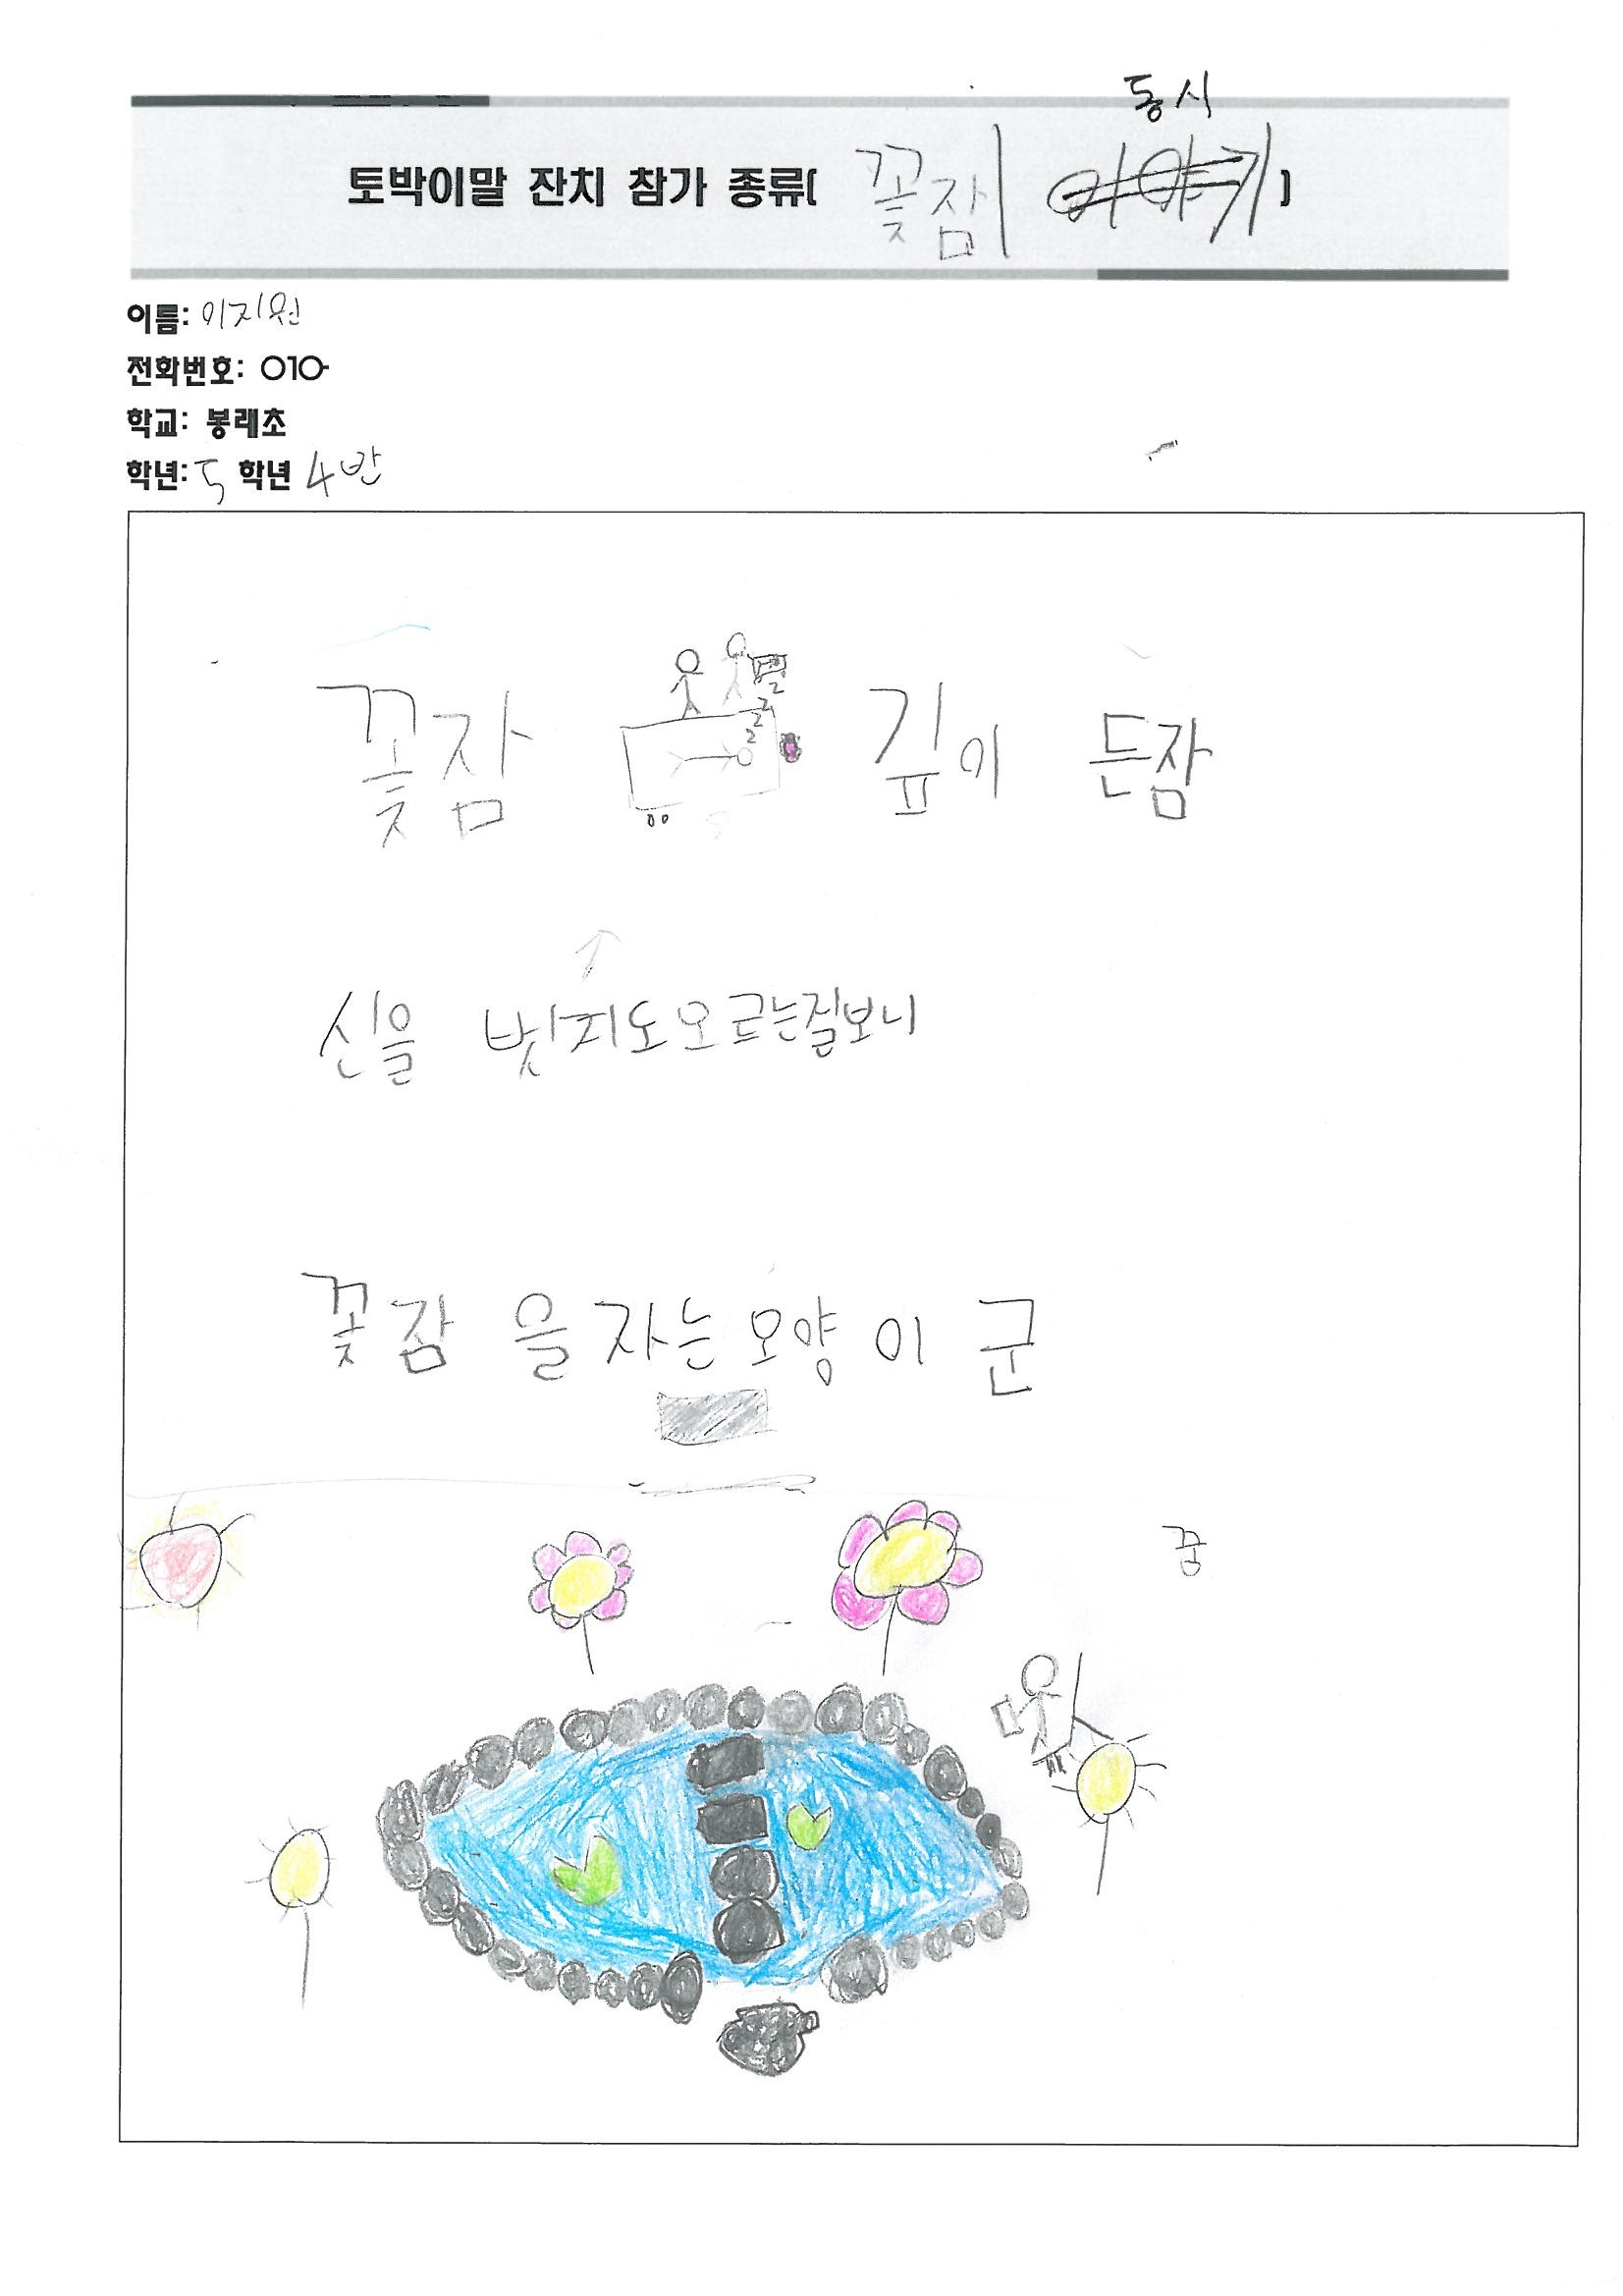 동시
토박이말 잔치 참가 종류( 꽃잠 이야기 )
이름: 이지원
전화번호: 010-
학교: 봉래초
학년: 5 학년 4반
꽃잠 깊이 든잠
신을 벗지도오르는질보니
꽃잠 을 자는모양 이 군
꿈